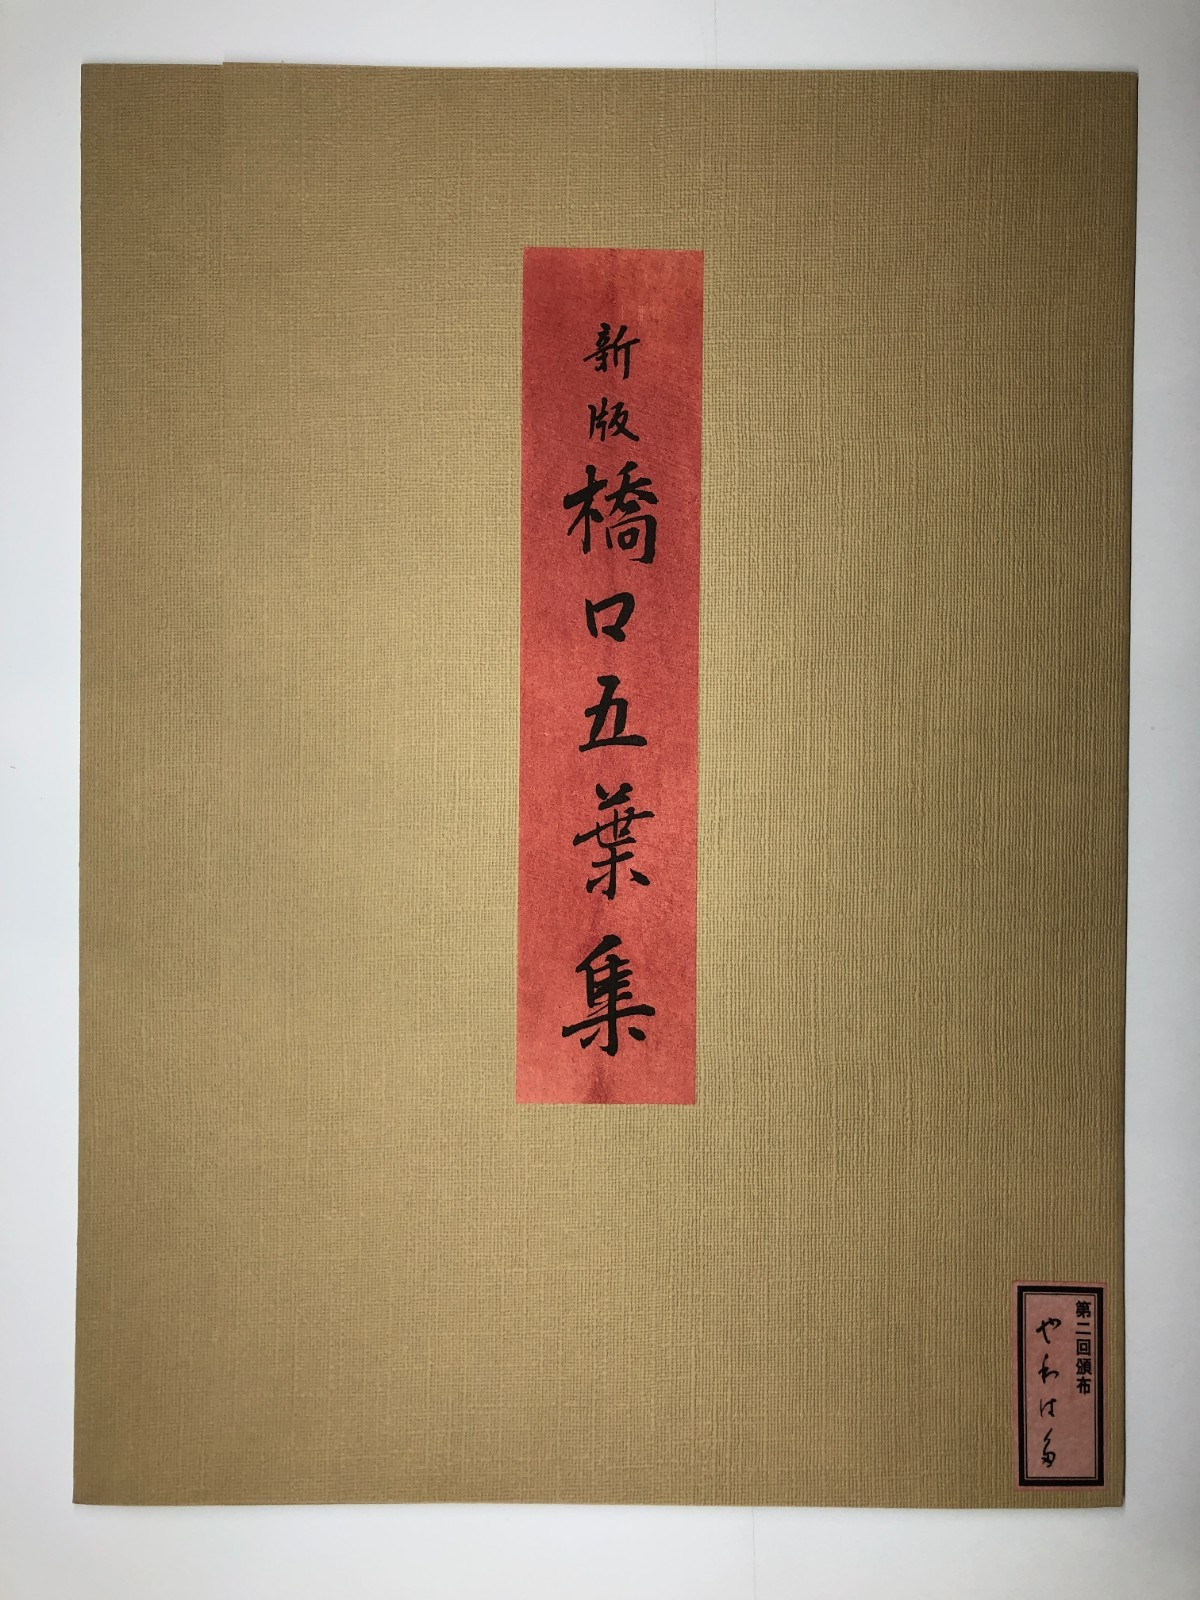 新版橋口五葉集
第二回頒布
やわはだ